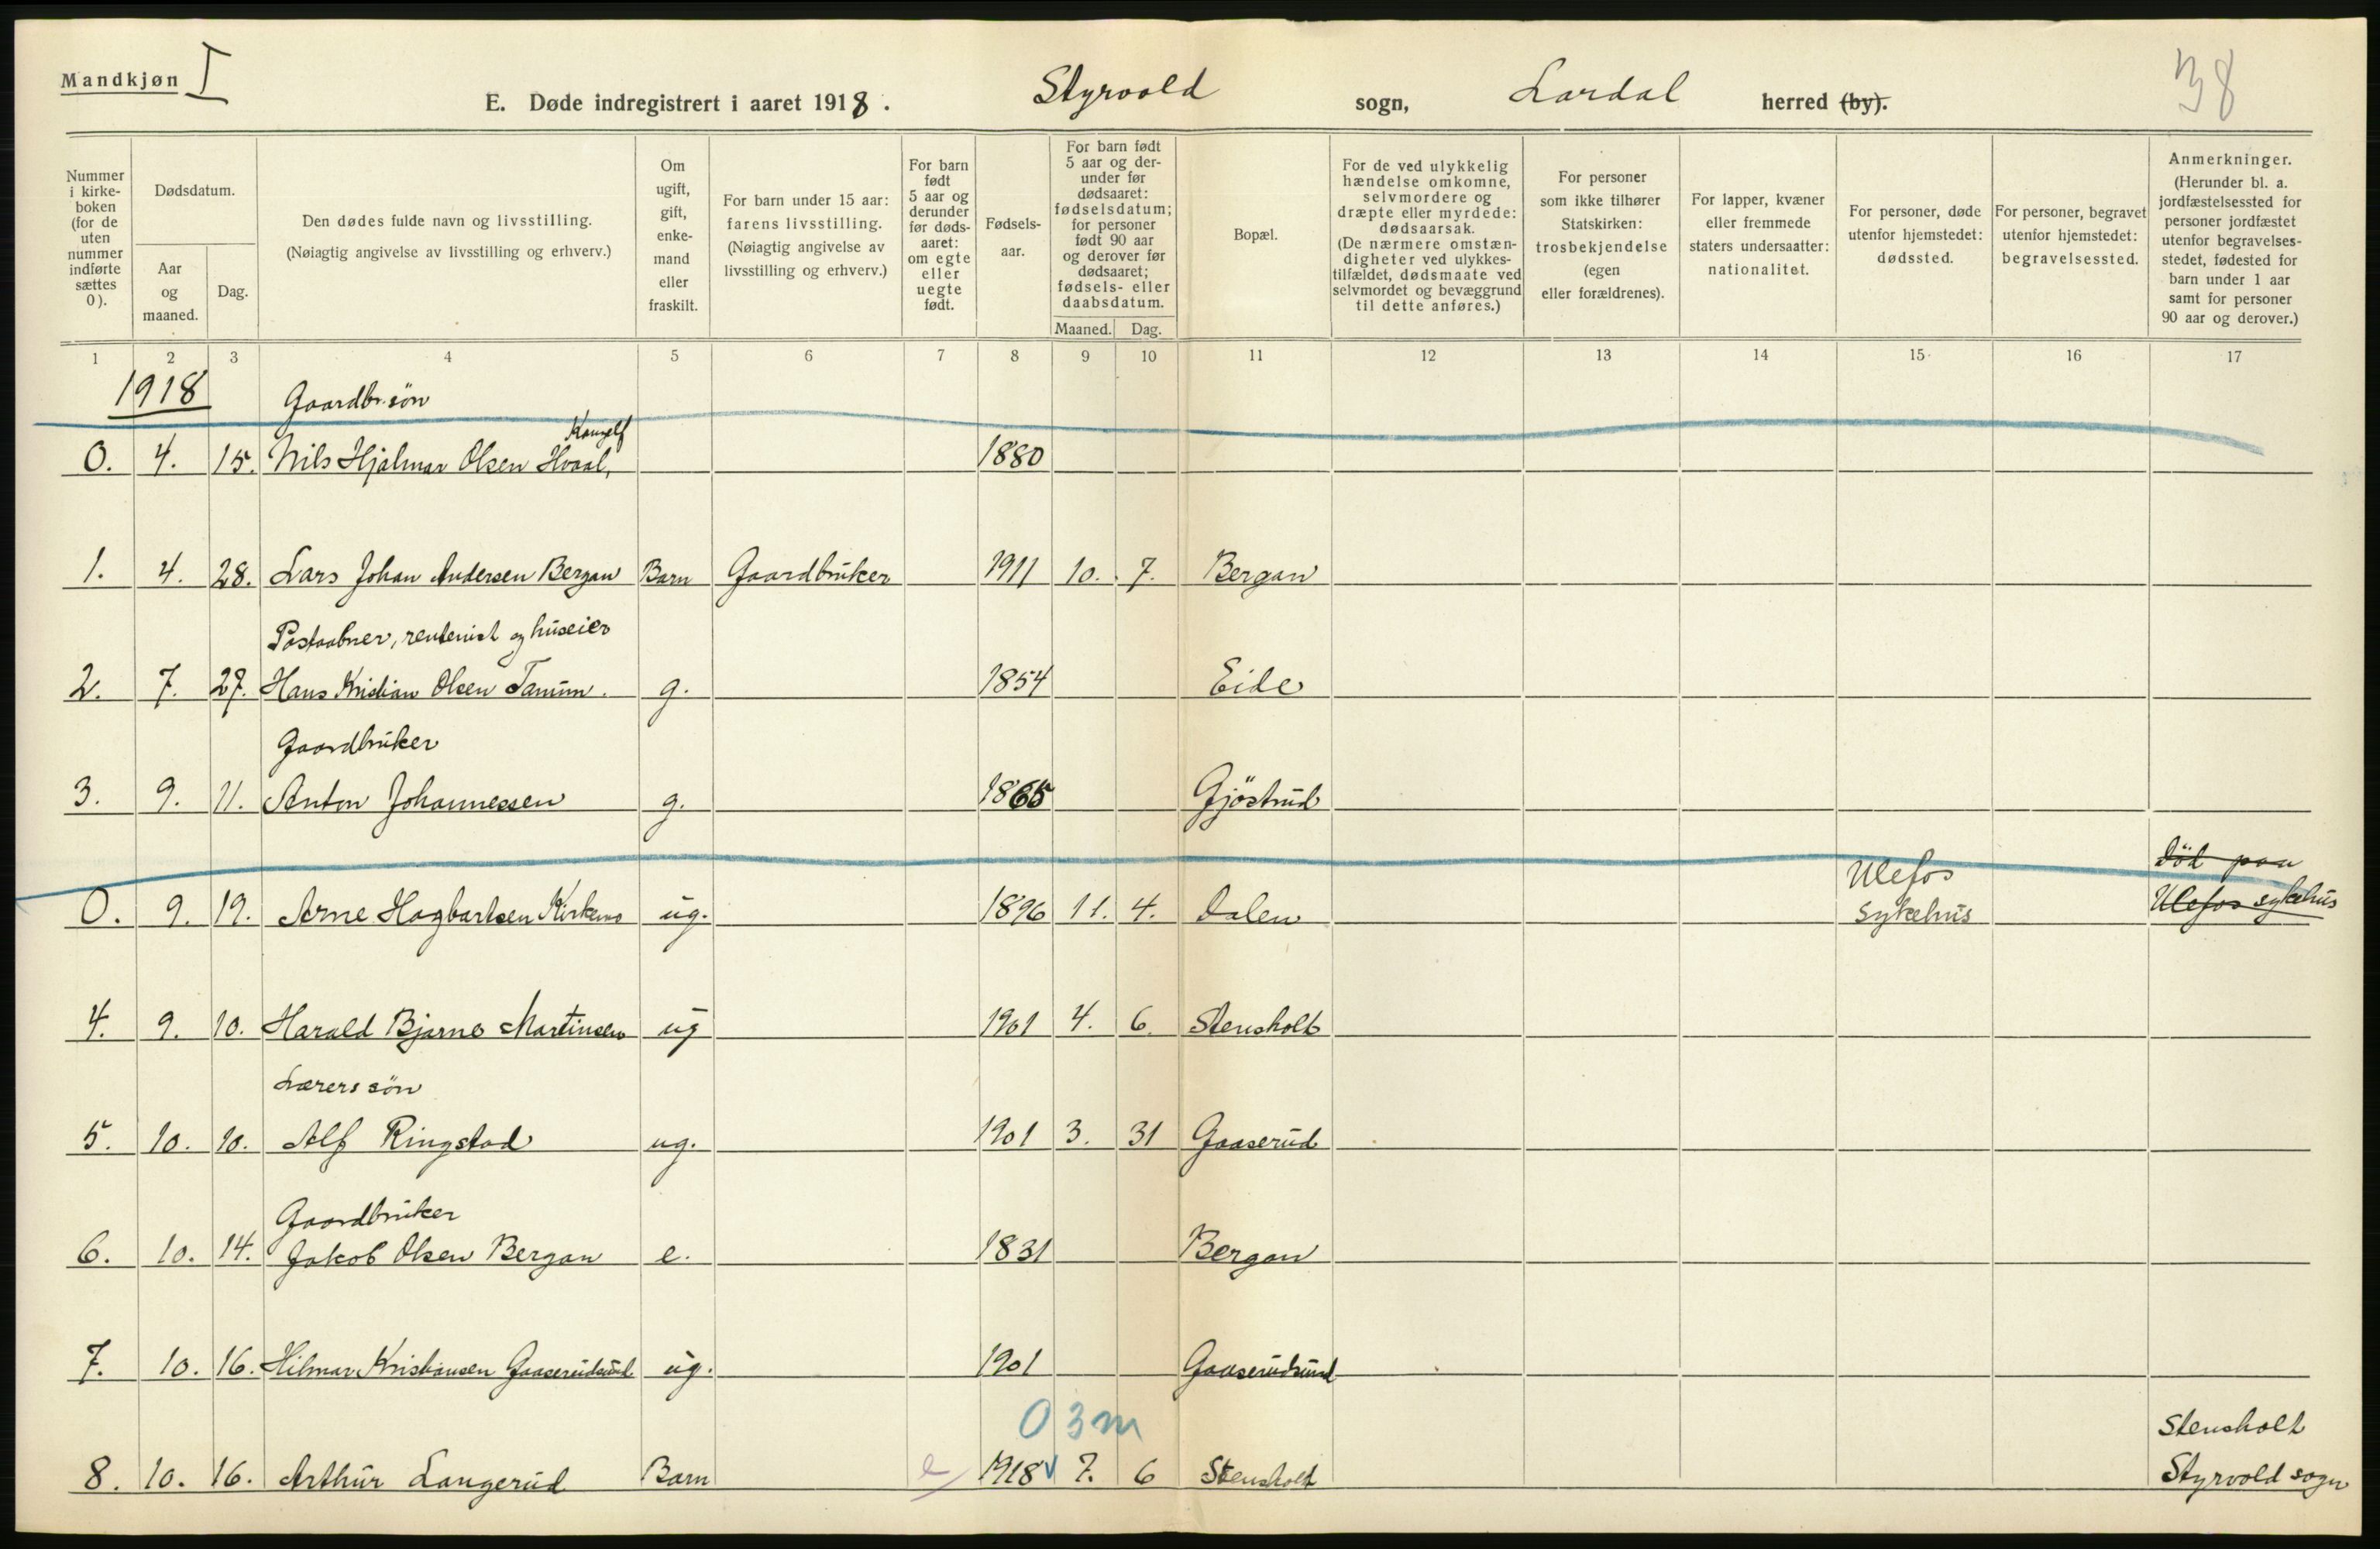 Mandkjøn I
E. Døde indregistrert i aaret 1918. Styrvold sogn, Lardal herred (by).
38
Nummer i kirke-boken (for de uten nummer indførte sættes 0).
Dødsdatum.
Aar og maaned.
Dag.
Den dødes fulde navn og livsstilling.
(Nøiagtig angivelse av livsstilling og erhverv.)
Om ugift, gift, enke-mand eller fraskilt.
For barn under 15 aar: farens livsstilling.
(Nøiagtig angivelse av livsstilling og erhverv.)
For barn født 5 aar og derunder før døds-aaret: om egte eller uegte født.
Fødsels-aar.
For barn født 5 aar og der-under før dødsaaret: fødselsdatum; for personer født 90 aar og derover før dødsaaret; fødsels- eller daabsdatum.
Maaned. Dag.
Bopæl.
For de ved ulykkelig hændelse omkomne, selvmordere og dræpte eller myrdede: dødsaarsak.
(De nærmere omstæn-digheter ved ulykkes-tilfældet, dødsmaate ved selvmordet og bevæggrund til dette anføres.)
For personer som ikke tilhører Statskirken: trosbekjendelse (egen eller forældrenes).
For lapper, kvæner eller fremmede staters undersaatter: nationalitet.
For personer, døde utenfor hjemstedet: dødssted.
For personer, begravet utenfor hjemstedet: begravelsessted.
Anmerkninger.
(Herunder bl. a. jordfæstelsessted for personer jordfæstet utenfor begravelses-stedet, fødested for barn under 1 aar samt for personer 90 aar og derover.)
1 2 3 4 5 6 7 8 9 10 11 12 13 14 15 16 17
1918
Gaardbr.søn
0. 4. 15. Nils Hjalmar Olsen Hvaal, 1880
1. 4. 28. Lars Johan Andersen Bergan Barn Gaardbruker 1911 10. 7. Bergan
Postaabner, rentenist og huseier
2. 7. 27. Hans Kristian Olsen Tanum. g. 1854 Eide
Gaardbruker
3. 9. 11. Anton Johannessen g. 1865 Gjöstrud
Död paa
Ulefos
0. 9. 19. Arne Hagbartsen Kirkemo ug. 1896 11. 4. Dalen Sykehus Ulefos sykehus
4. 9. 10. Harald Bjarne Martinsen ug 1901 4. 6. Stensholt
Lærers sön
5. 10. 10. Alf Ringstad ug. 1901 3. 31 Gaaserud
Gaardbruker
6. 10. 14. Jakob Olsen Bergan e. 1831 Bergan
7. 10. 16. Hilmar Kristiansen Gaaserudsund ug. 1901 Gaaserudsund
0 3 m
Stensholt
8. 10. 16. Arthur Langerud Barn e 1918 7. 6 Stensholt Styrvold sogn